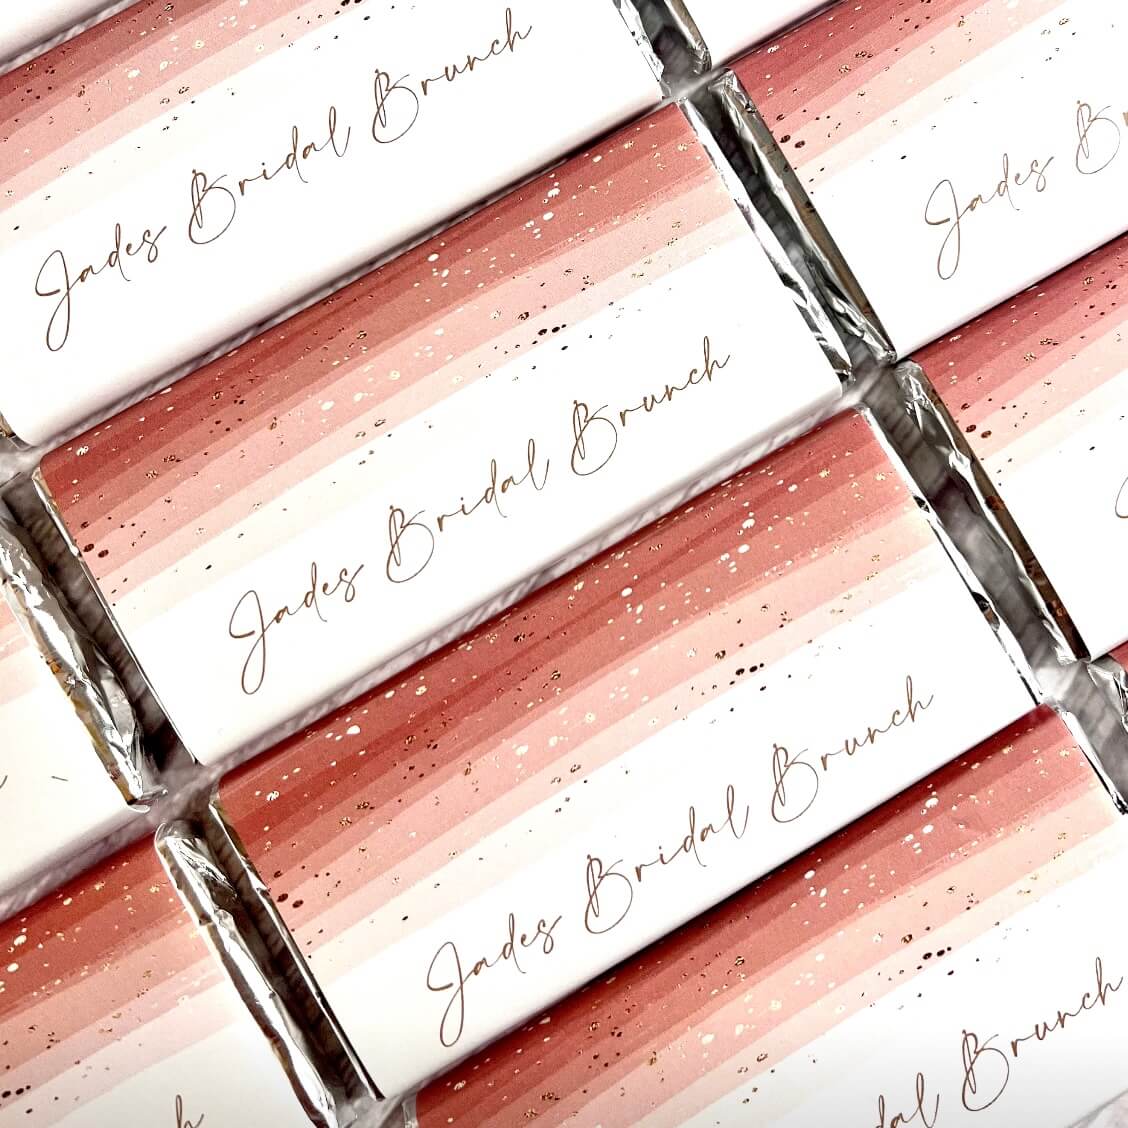 Jades Bridal Brunch
Jades B
Jades Bridal Brunch
Jades Bridal Brunch
dal Brunch
h